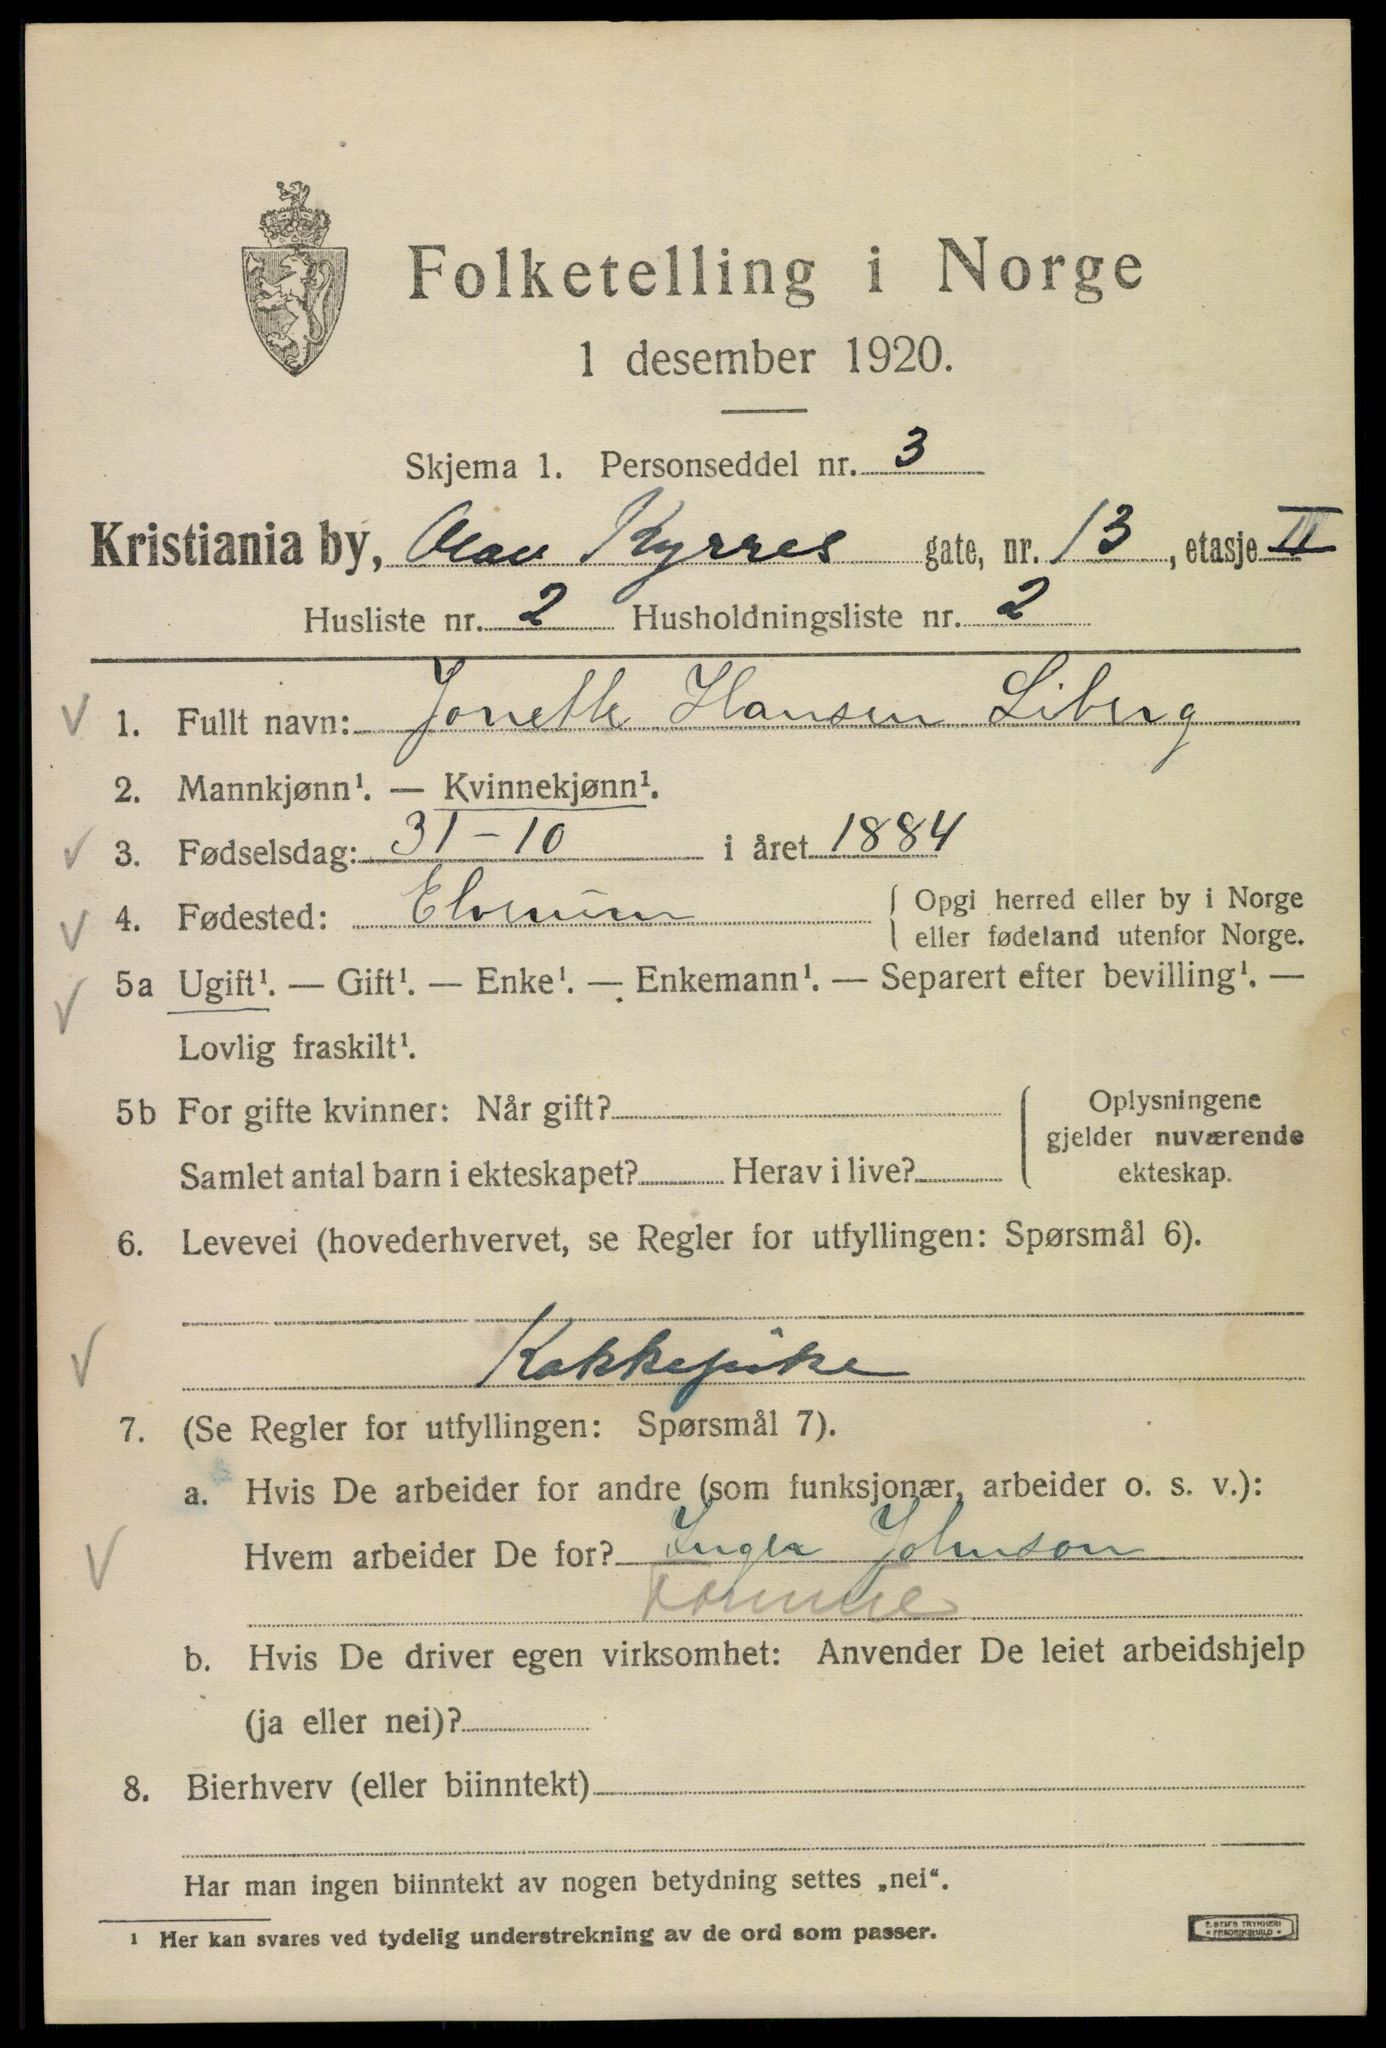 Folketelling i Norge
1 desember 1920.
Skjema 1. Personseddel nr. 3
Kristiania by, Olav Kyrres gate, nr. 13, etasje II
Husliste nr. 2 Husholdningsliste nr. 2
1. Fullt navn: Jonette Hansen Liberg
2. Mannkjønn¹. — Kvinnekjønn¹.
3. Fødselsdag: 31-10 i året 1884
4. Fødested: Elverum { Opgi herred eller by i Norge
eller fødeland utenfor Norge.
5a Ugift¹. — Gift¹. — Enke¹. — Enkemann¹. — Separert efter bevilling¹. —
Lovlig fraskilt¹.
5b For gifte kvinner: Når gift? { Oplysningene
gjelder nuværende
Samlet antal barn i ekteskapet? Herav i live? ekteskap.
6. Levevei (hovederhvervet, se Regler for utfyllingen: Spørsmål 6).
Kokkepike
7. (Se Regler for utfyllingen: Spørsmål 7).
a. Hvis De arbeider for andre (som funksjonær, arbeider o. s. v.):
Hvem arbeider De for? Inger Johnson
b. Hvis De driver egen virksomhet: Anvender De leiet arbeidshjelp
(ja eller nei)?
8. Bierhverv (eller biinntekt)
Har man ingen biinntekt av nogen betydning settes „nei“.
¹ Her kan svares ved tydelig understrekning av de ord som passer.
E. SEM'S TRYKKERI
• FREDRIKSHALD •